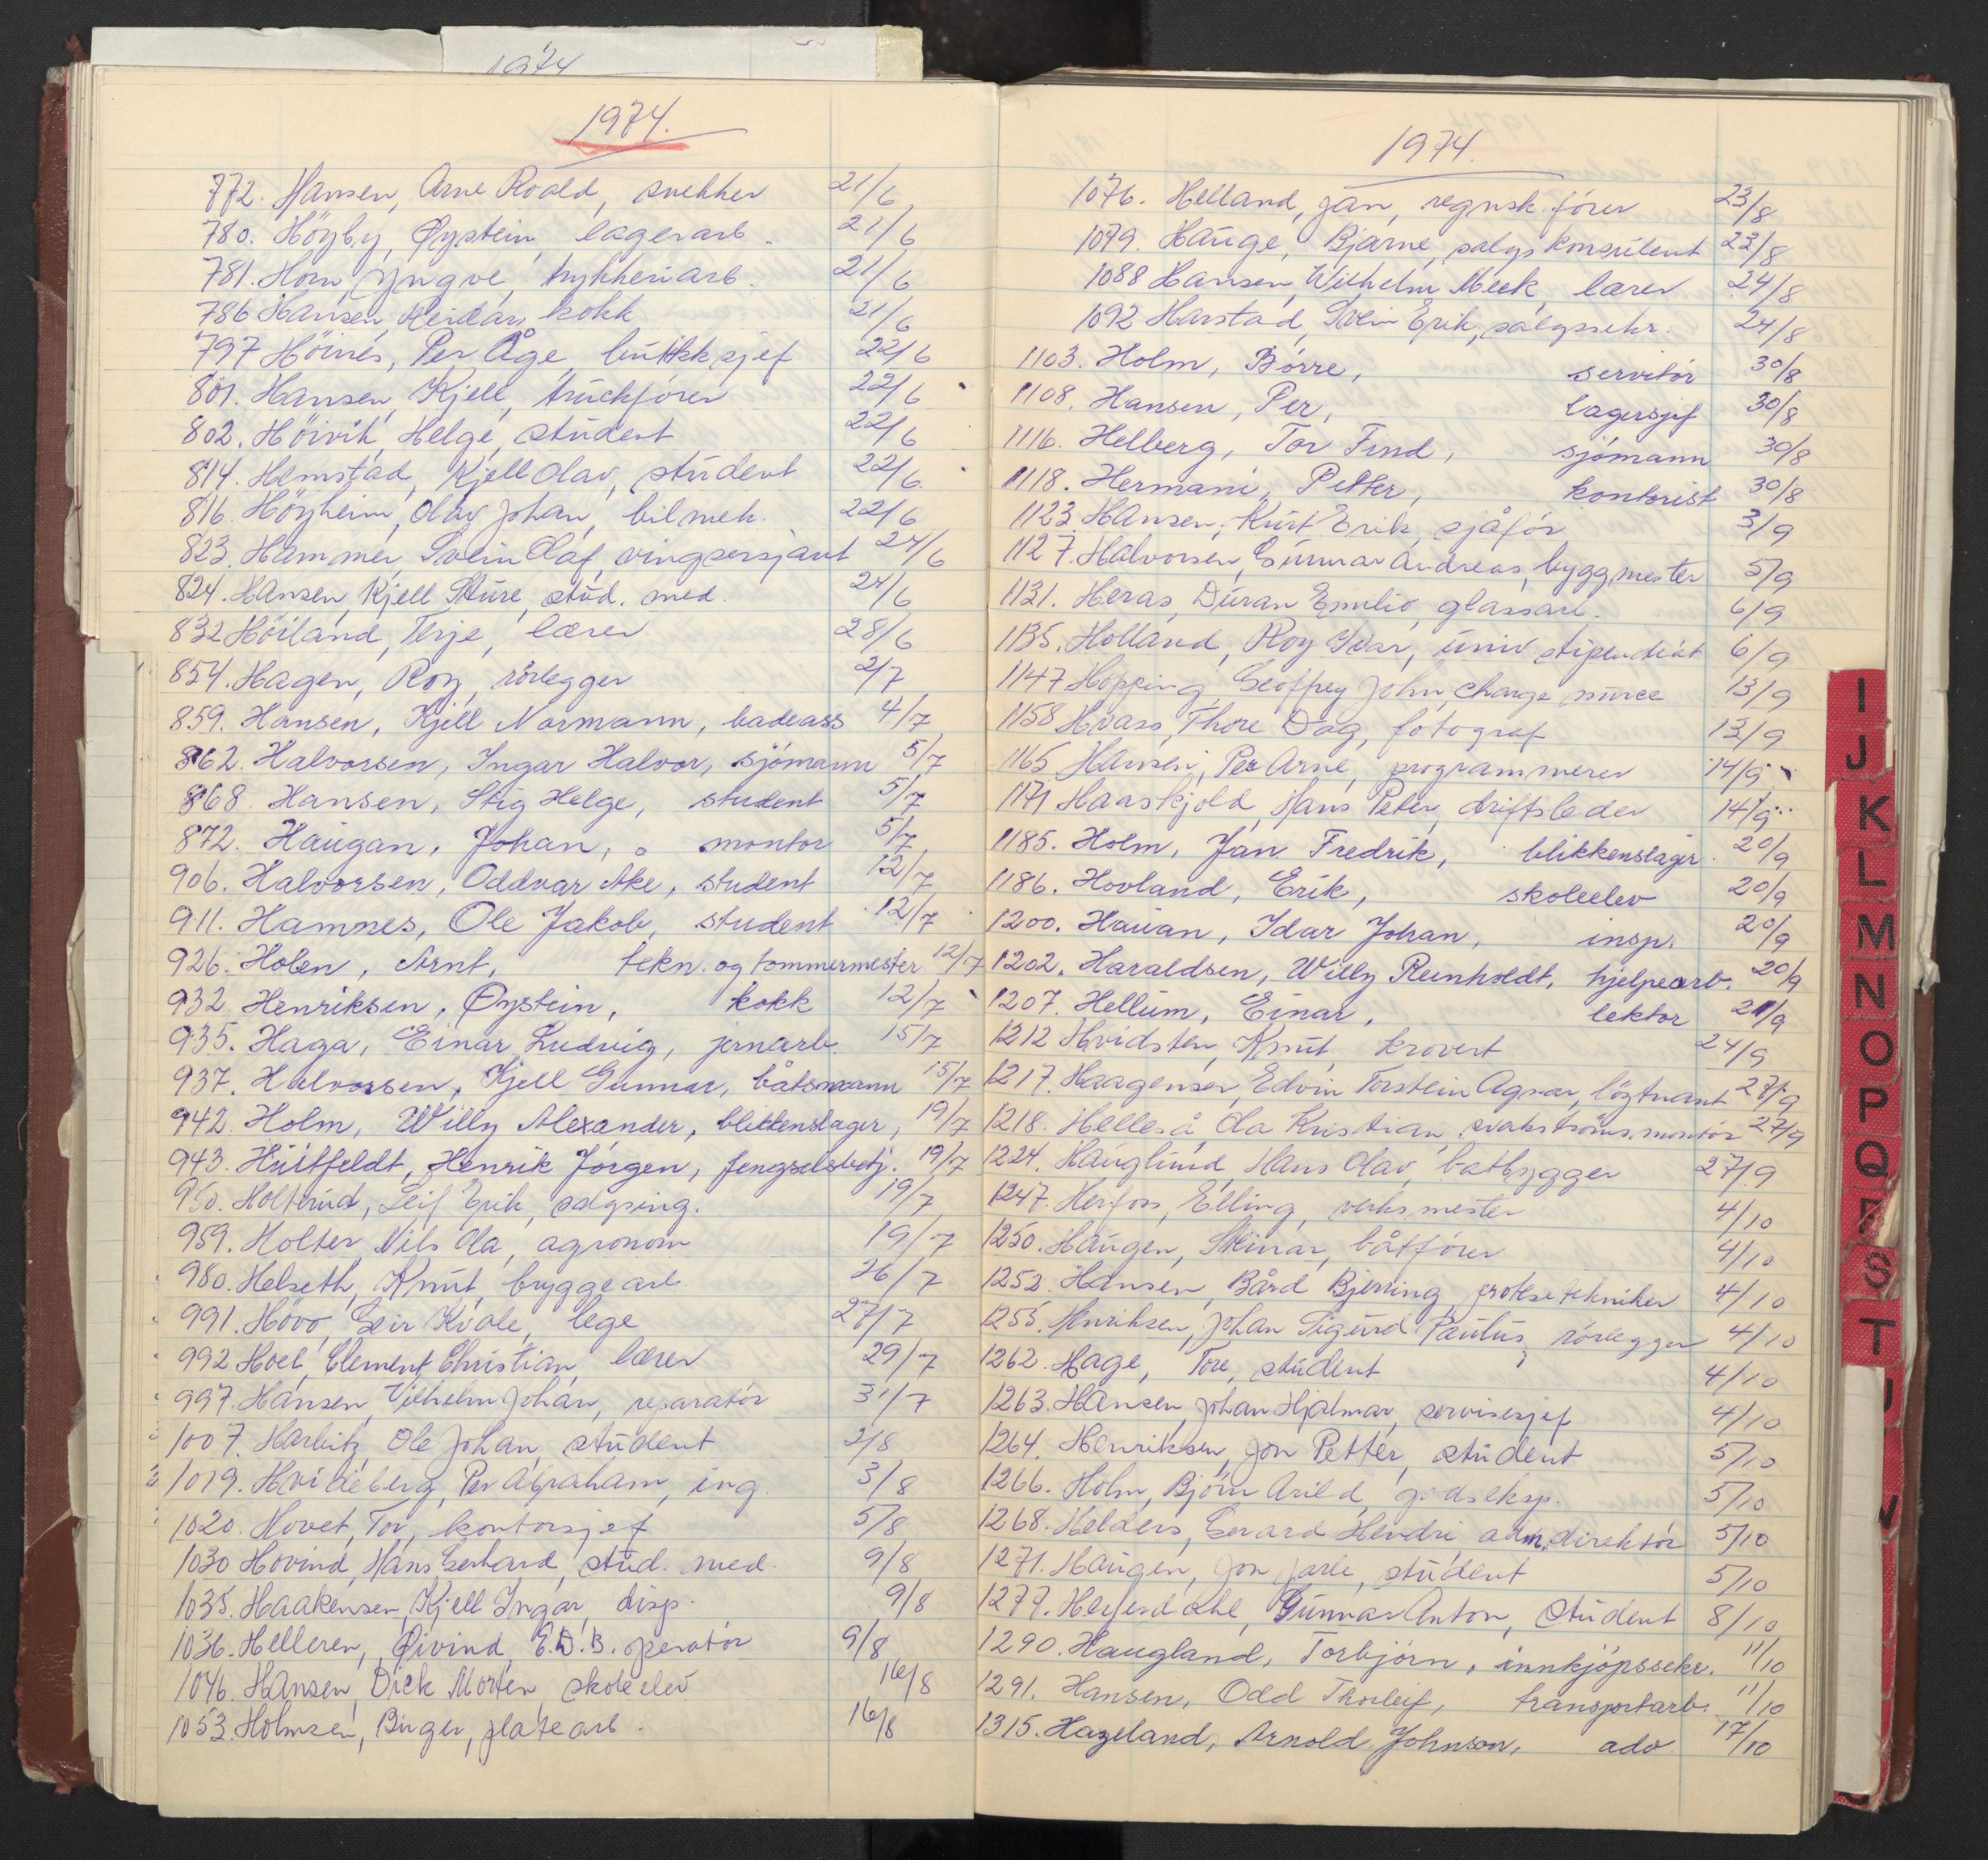 1974
1974.
772. Hansen, Arne Roald, snekker 21/6
780. Höyby, Øystein, lagerarb. 21/6
781. Horn, Yngve, trykkeriarb. 21/6
786 Hansen, Reidar, kokk 21/6
797 Höines, Per Åge, butikksjef 22/6
801. Hansen, Kjell, truckförer 22/6
802. Höivik, Helge, student 22/6
814. Hemstad, Kjell Olav, student 22/6
816. Höyheim, Olav Johan, bilmek. 22/6
823. Hammer, Svein Olaf, vingsersjant 24/6
824. Hansen, Kjell Sture, stud. med. 24/6
832 Höiland, Terje, lærer 28/6
854. Hagen, Roy, rörlegger 2/7
859. Hansen, Kjell Normann, badeass 4/7
862. Halvorsen, Ingar Halvor, sjömann 5/7
868. Hansen, Stig Helge, student 5/7
872. Haugan, Johan, montör 5/7
906. Halvorsen, Oddvar Ake, student 12/7
911. Hamnes, Ole Jakob, student 12/7
926. Holen, Arnt, tekn. og tømmermester 12/7
932. Henriksen, Øystein, kokk 12/7
935. Haga, Einar Ludvig, jernarb. 15/7
937. Halvorsen, Kjell Gunnar, båtsmann 15/7
942. Holm, Willy Alexander, blikkenslager, 19/7
943. Huitfeldt, Henrik Jörgen, fengselsbetj. 19/7
950. Holterud, Leif Erik, salgsing. 19/7
959. Holter, Nils Ola, agronom 19/7
980. Helseth, Knut, bryggearb. 26/7
991. Hovo, Geir Kvale, lege 27/7
992 Hoel, Clement Christian, lærer 29/7
997. Hansen, Vilhelm Johan, reparatör 31/7
1007. Harbitz, Ole Johan, student 2/8
1019. Hvideberg, Per Abraham, ing. 3/8
1020. Hovet, Tor, kontorsjef 5/8
1030 Hovind, Hans Gerhard, stud. med. 9/8
1035. Haakensen, Kjell Ingar, disp. 9/8
1036. Helleren, Øivind, E.D.B. operatör 9/8
1046. Hansen, Dick Morten, skoleelev 16/8
1053. Holmsen, Birger, platearb. 16/8
1974.
1076. Helland, Jan, regnsk.förer 23/8
1079. Hauge, Bjarne, salgskonsulent 23/8
1088 Hansen, Wilhelm Meek, lærer 24/8
1092 Harstad, Svein Erik, salgssekr. 24/8
1103. Holm, Börre, servitör 30/8
1108. Hansen, Per, lagersjef 30/8
1116. Helberg, Tor Find, sjömann 30/8
1118. Hermani, Petter, kontorist 30/8
1123 Hansen, Kurt Erik, sjåför 3/9
1127. Halvorsen, Gunnar Andreas, byggmester 5/9
1131. Heras, Duran Emilio, glassarb. 6/9
1135. Holland, Roy Ivar, univ. stipendiat 6/9
1147 Hopping, Geoffrey John, charge nurce 13/9
1158 Hvass, Thore Dag, fotograf 13/9
1165 Hansen, Per Arne, programmerer 14/9
1171 Haaskjold, Hans Peter, driftsleder 14/9
1185. Holm, Jan Fredrik, blikkenslager. 20/9
1186. Hovland, Erik, skoleelev 20/9
1200. Hauan, Idar Johan, insp. 20/9
1202. Haraldsen, Willy Reinholdt, hjelpearb. 20/9
1207. Hellum, Einar, lektor 21/9
1212 Hvidsten, Knut, krovert 24/9
1217. Haagensen, Edvin Torstein Agnar, löytnant 27/9
1218. Helleså, Ola Kristian, svakströms.montör 27/9
1224. Hauglund, Hans Olav, båtbygger 27/9
1247. Herfoss, Elling, verksmester 4/10
1250. Haugen, Steinar, båtförer 4/10
1252. Hansen, Bård Bjerring, protsetekniker 4/10
1255. Henriksen, Johan Sigurd Paulus, rörlegger 4/10
1262. Hage, Tore, student 4/10
1263. Hansen, Johan Hjalmar, servisesjef 4/10
1264. Henriksen, Jon Petter, student 5/10
1266. Holm, Björn Arild, godseksp. 5/10
1268. Helders, Gerard Hendri, adm.direktör 5/10
1271. Haugen, Jon Jarle, student 5/10
1279. Herfendahl, Gunnar Anton, student 8/10
1290. Haugland, Torbjörn, innkjöpssekr. 11/10
1291. Hansen, Odd Thorleif, transportarb. 11/10
1315. Hazeland, Arnold Johnson, adv. 17/10
I
J
K
L
M
N
O
P
Q
R
S
T
U